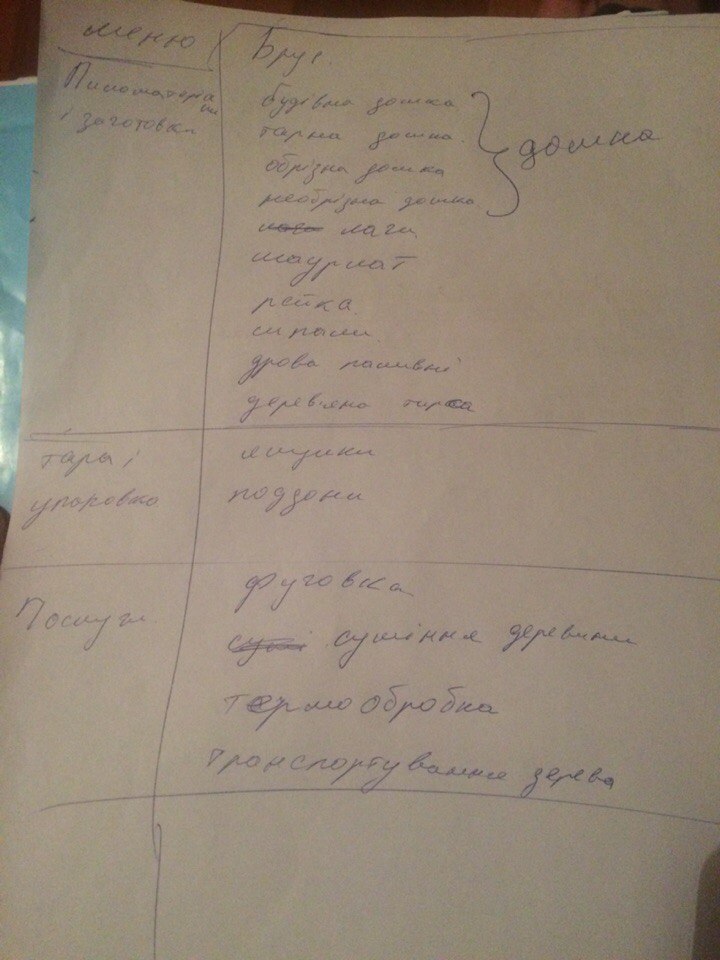 меню
Брус
Пиломатеріали
і заготовки
будівна дошка
тарна дошка
обрізна дошка
необрізна дошка
дошка
лаги
маурлат
рейка
шпали
дрова паливні
деревяна тирса
тара і
упаковка
ящики
поддони
Послуги
фуговка
сушіння деревини
термообробка
транспортування дерева